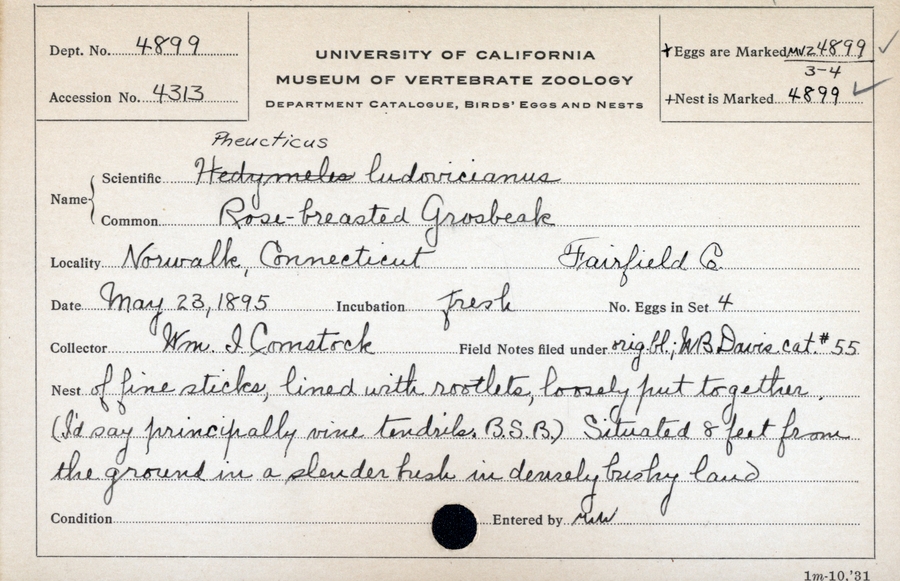 Dept. No. 4899
Accession No. 4313
UNIVERSITY OF CALIFORNIA
MUSEUM OF VERTEBRATE ZOOLOGY
DEPARTMENT CATALOGUE, BIRDS' EGGS AND NESTS
+Eggs are Marked MVZ4899 ✓
3-4
+Nest is Marked 4899 ✓
Pheucticus
Name { Scientific Hedymeles ludovicianus
Common Rose-breasted Grosbeak
Locality Norwalk, Connecticut Fairfield Co.
Date May 23, 1895 Incubation fresh No. Eggs in Set 4
Collector Wm. I Comstock Field Notes filed under orig bl.; WB Davis cat. #55
Nest of fine sticks, lined with rootlets, loosely put together.
(I'd say principally vine tendrils. B.S.B.) Situated 8 feet from
the ground in a slender bush in densely bushy land
Condition Entered by
1m-10,'31